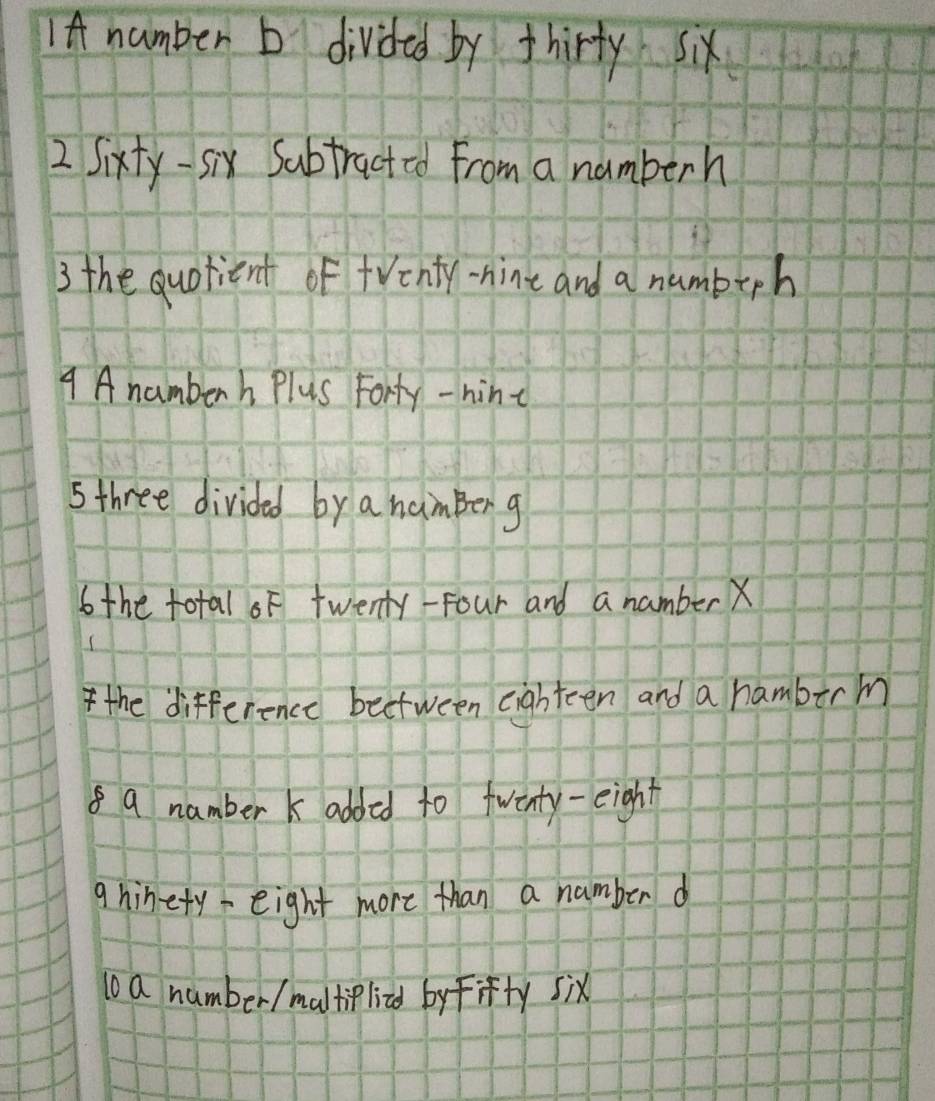 1 A number b divided by thirty six
2 Sixty-six Subtracted From a number h
3 the quotient of twenty-nine and a number h
4 A number h Plus Forty-nine
5 three divided by a number g
6 the total of twenty-Four and a number X
7 the difference beetween eighteen and a number m
8 a number k added to twenty-eight
9 ninety-eight more than a number d
10 a number / multiplied by Fifty six